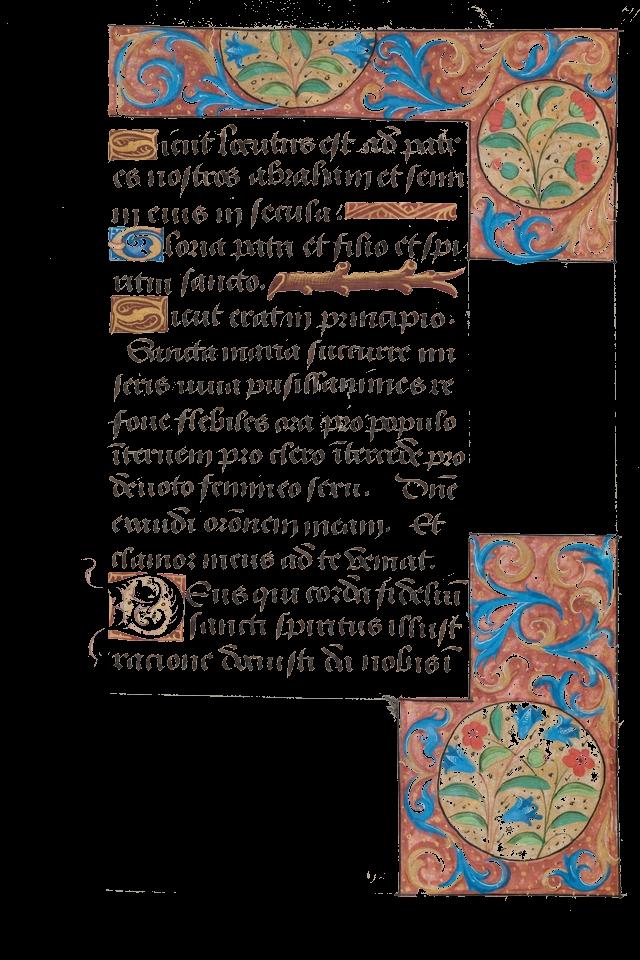 Sicut locutus est ad patr
es nostros abraham et semi
ni eius in secula.
Gloria patri et filio et spi
ritui sancto.
Sicut erat in principio.
Sancta maria succurre mi
seris iuua pusillanimes re
foue flebiles ora pro populo
īteruem pro clero ītercede pro
deuoto femineo sexu. Dn̄e
exaudi orōnem meam. Et
clamor meus ad te veniat.
Deus qui corda fideliū
sancti spiritus illust
racione docuisti da nobis ī